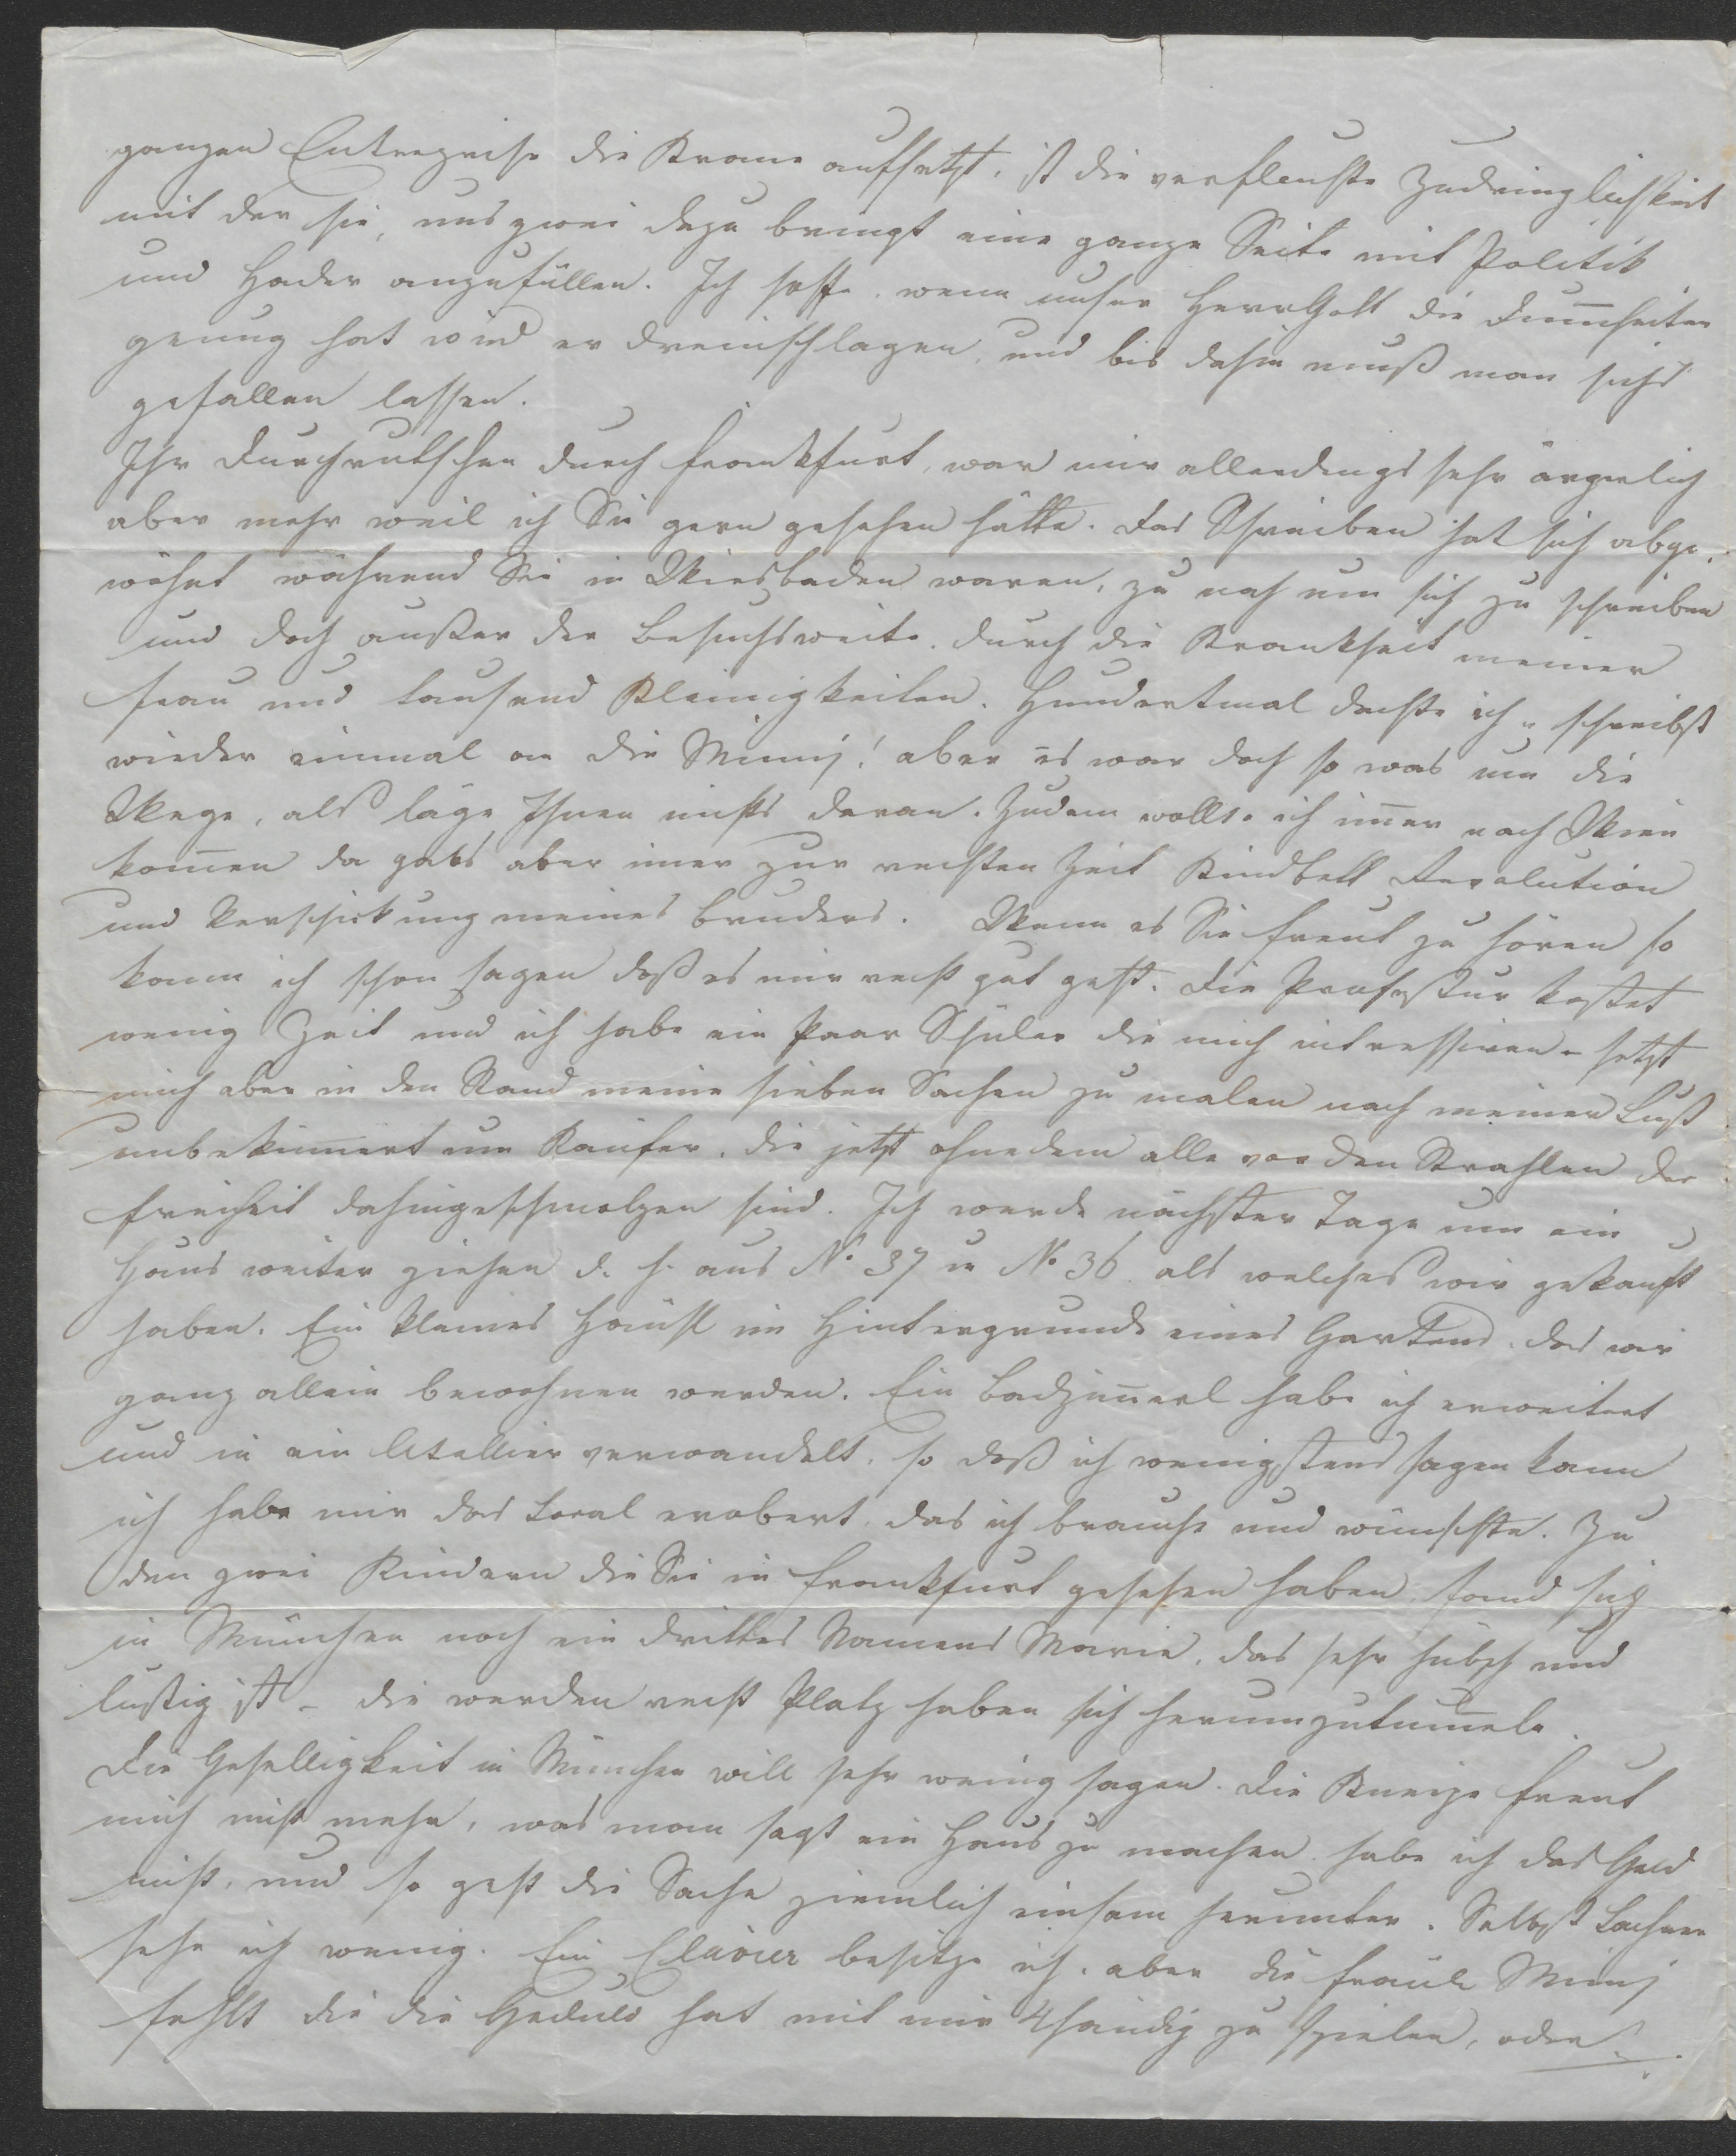 ganzen Entreprise die Krone aufsetzt, ist die verfluchte Zudringlichkeit
mit der sie, uns zwei dazu bringt eine ganze Seite mit Politik
und Hader anzufüllen. Ich hoffe, wenn unser HerrGott die Dum̄heiten
genug hat wird er dreinschlagen, und bis dahin muß man sichs
gefallen lassen.
Ihr Durchrutschen durch Frankfurt, war mir allerdings sehr ärgerlich
aber mehr weil ich Sie gern gesehen hätte. Das Schreiben hat sich abge-
wöhnt während Sie in Wiesbaden waren, zu nah um sich zu schreiben
und doch außer der Besuchsweite, durch die Krankheit meiner
Frau und tausend Kleinigkeiten. Hundertmal dachte ich „ schreibst
wieder einmal an die Minnj! aber es war doch so was um die
Wege, als läge Ihnen nichts daran. Zudem wollte ich im̄er nach Wien
kom̄en da gabs aber im̄er zur rechten Zeit Kindbett Revolution
und Verschickung meines Bruders. Wenn es Sie freut zu hören so
kann ich schon sagen daß es mir recht gut geht. Die Professur kostet
wenig Zeit und ich habe ein Paar Schüler die mich intressiren – setzt
mich aber in den Stand meine sieben Sachen zu malen nach meiner Lust
unbeküm̄ert um Käufer, die jetzt ohnedem alle vor den Strahlen der
Freiheit dahingeschmolzen sind. Ich werde nächster Tage um ein
Haus weiter ziehen d. h. aus N° 37 in N° 36. als welches wir gekauft
haben. Ein kleines Häusl im Hintergrunde eines Gartens, das wir
ganz allein bewohnen werden. Ein Badzim̄erl habe ich erweitert
und in ein Attellier verwandelt, so daß ich wenigstens sagen kann
ich habe mir das Local erobert, das ich brauche und wünschte. Zu
den zwei Kindern die Sie in Frankfurt gesehen haben, fand sich
in München noch ein drittes Namens Marie, das sehr hübsch und
lustig ist – die werden recht Platz haben sich herumzutum̄eln.
Die Geselligkeit in München will sehr wenig sagen. Die Kneipe freut
mich nicht mehr, was man sagt ein Haus zu machen, habe ich das Geld
nicht, und so geht die Sache ziemlich einsam herunter. Selbst Lachner
sehe ich wenig. Ein Clavier besitze ich, aber die Fräule Minnj
fehlt die die Geduld hat mit mir 4händig zu spielen, oder